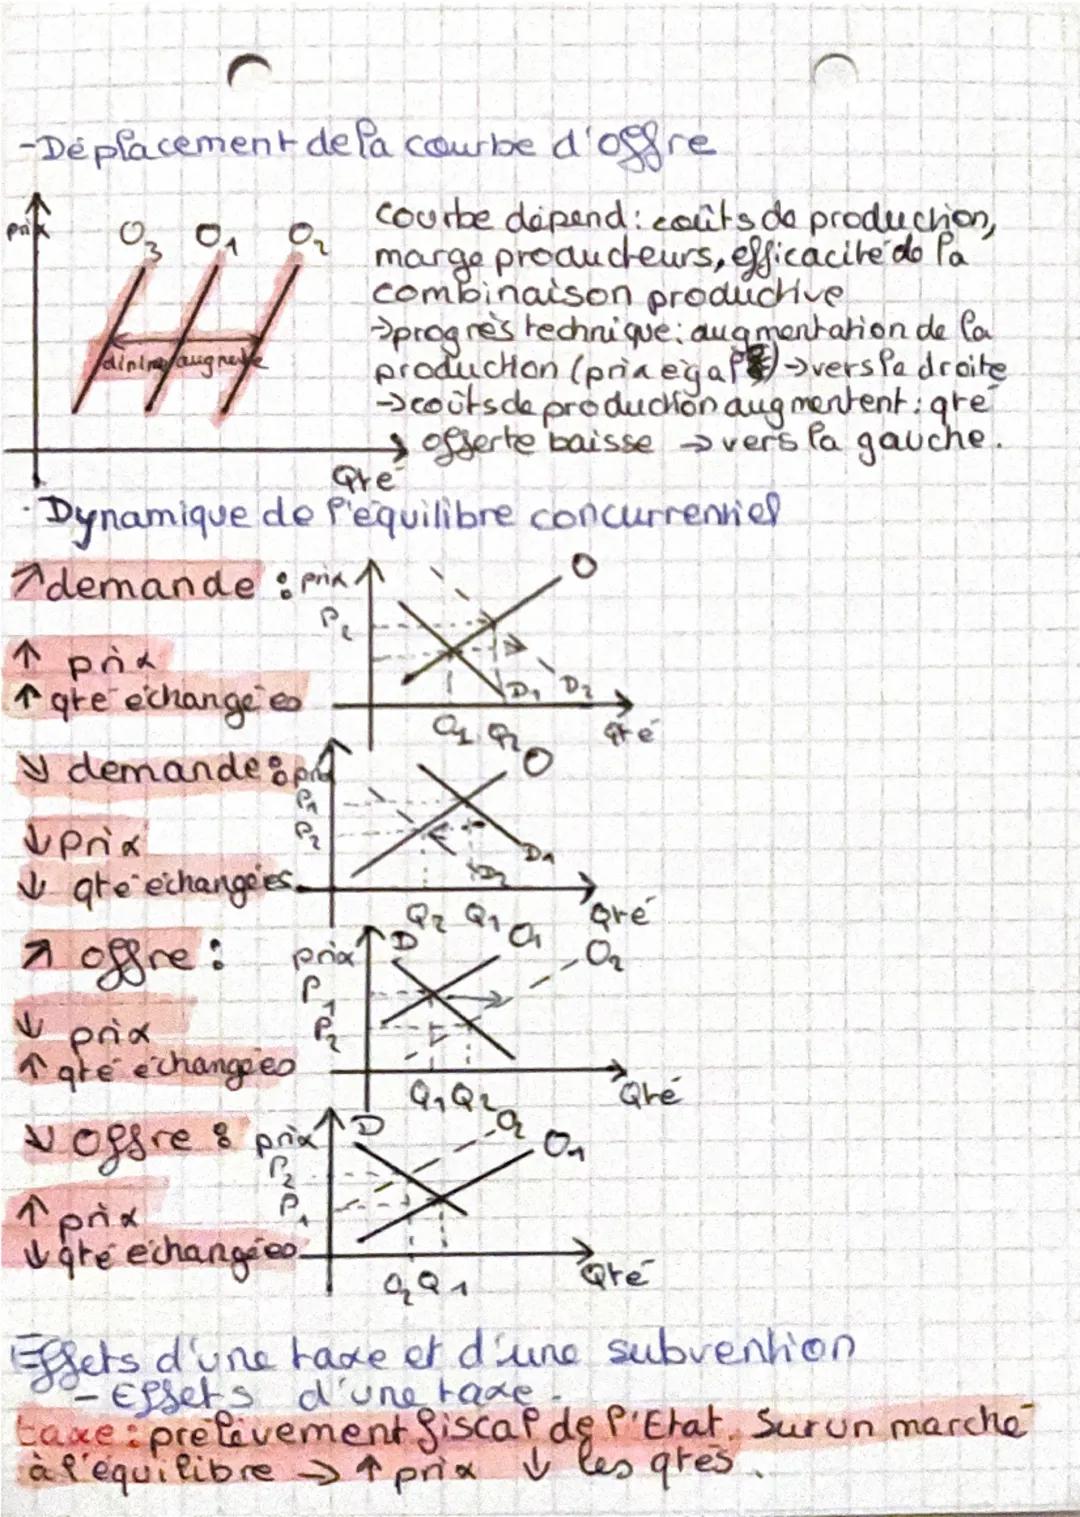 -Déplacement de la courbe d'offre
prix
O3 O1 O2
augmente
Qté
courbe dépend: coûts de production,
marge producteurs, efficacité de la
combinaison productive
→progrès technique: augmentation de la
production (prix égal) → vers la droite
→coûts de production augmentent: qté
offerte baisse → vers la gauche.
- Dynamique de l'équilibre concurrentiel
↗ demande : prix
O
P2
↑ prix
↑ qté échangées
D1 D2
Q1 Q2 Qté
↘ demande : prix
O
P1
P2
↓ prix
↓ qté échangées
D1
D2
Q2 Q1 Qté
↗ offre :
prix D O1 O2
P1
P2
↓ prix
↑ qté échangées
Q1 Q2 Qté
↘ offre : prix D O2 O1
P2
P1
↑ prix
↓ qté échangées
Q2 Q1 Qté
Effets d'une taxe et d'une subvention
- Effets d'une taxe.
taxe: prélèvement fiscal de l'Etat. Sur un marché
à l'équilibre → ↑ prix ↓ les qtés.